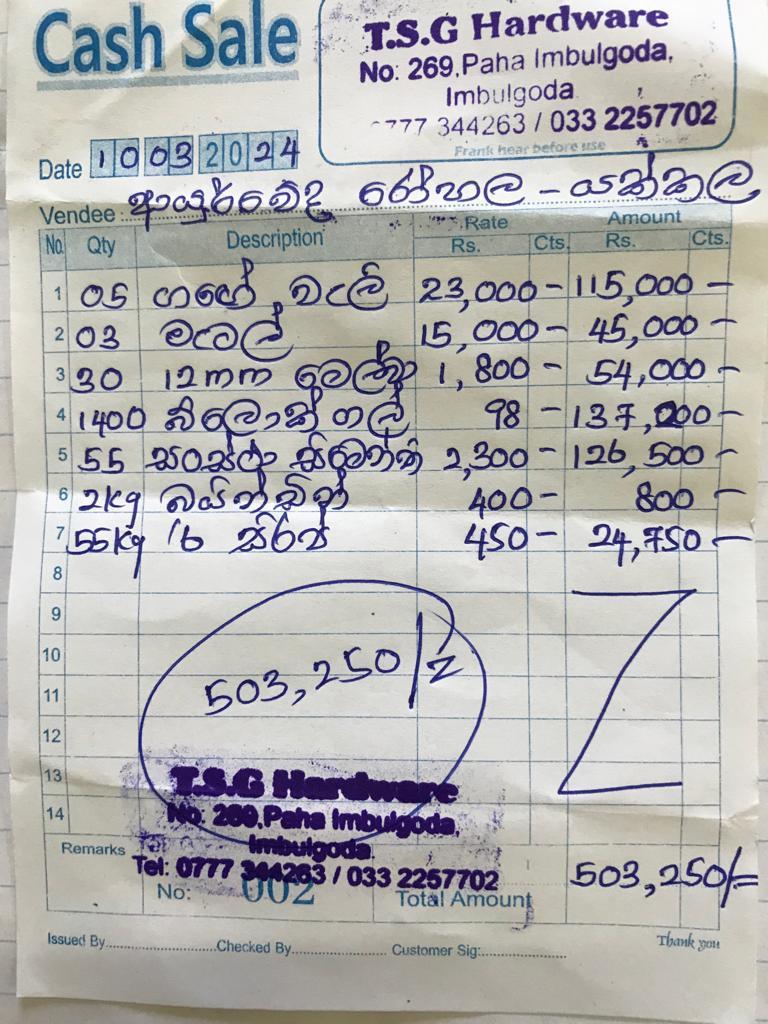 Cash Sale
T.S.G Hardware
No: 269,Paha Imbulgoda,
Imbulgoda
0777 344263 / 033 2257702
Frank hear before use
Date 10 03 2024
Vendee : ආයුර්වේද රෝහල - යක්කල
No. Qty Description Rate Rs. Cts. Amount Rs. Cts.
1 05 ගඟේ වැලි 23,000 - 115,000 -
2 03 මැටල් 15,000 - 45,000 -
3 30 12mm 1,800 - 54,000 -
4 1400 බ්ලොක් ගල් 98 - 137,200 -
5 55 සංස්ථා සිමෙන්ති 2,300 - 126,500 -
6 2kg බයින්ඩින් 400 - 800 -
7 55kg 450 - 24,750 -
8
9
10
11
12
13
14
503,250/=
T.S.G Hardware
No: 269,Paha Imbulgoda,
Imbulgoda
Tel: 0777 344263 / 033 2257702
Remarks
No: 002 Total Amount 503,250/=
Issued By Checked By Customer Sig: Thank you